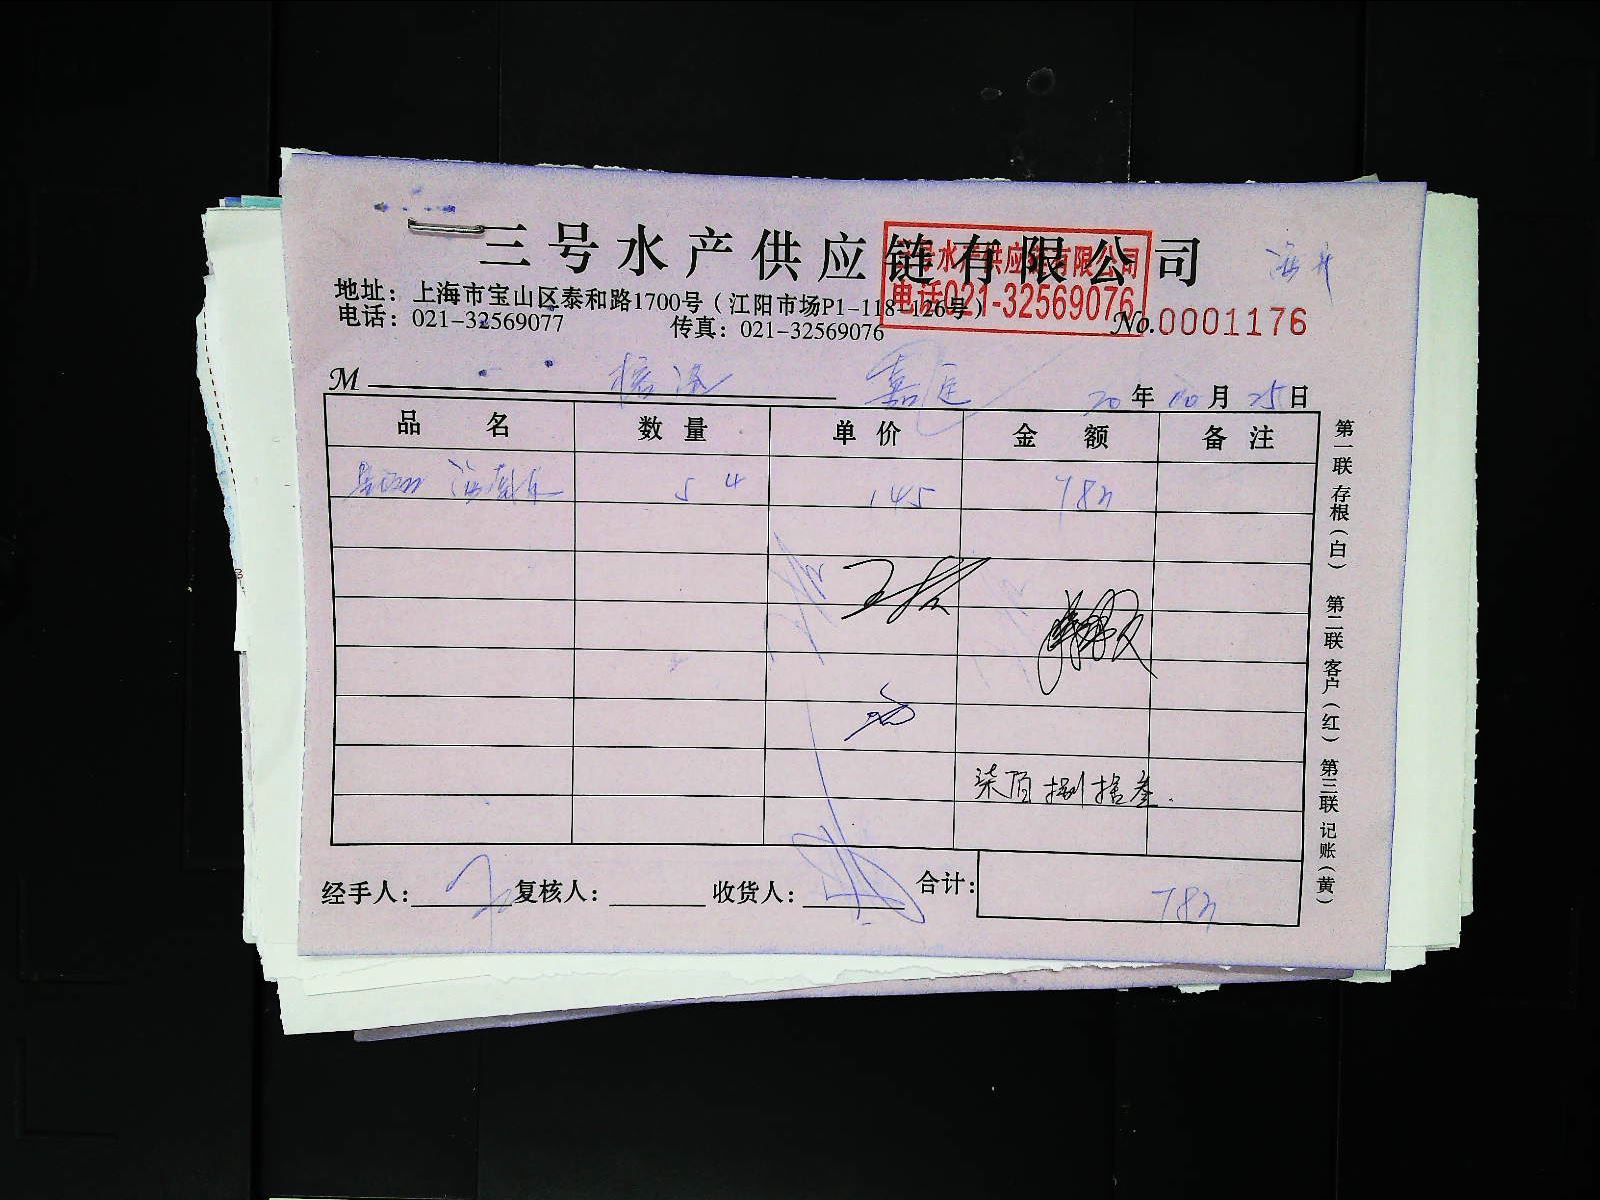 三号水产供应链有限公司
三号水产供应链有限公司
电话021-32569076
地址：上海市宝山区泰和路1700号（江阳市场P1-118-126号）
电话：021-32569077 传真：021-32569076
No.0001176
M 嘉定 20年10月25日
品名 数量 单价 金额 备注
54 145 783
柒百捌拾叁.
经手人： 复核人： 收货人： 合计： 783
第一联 存根（白） 第二联 客户（红） 第三联 记账（黄）